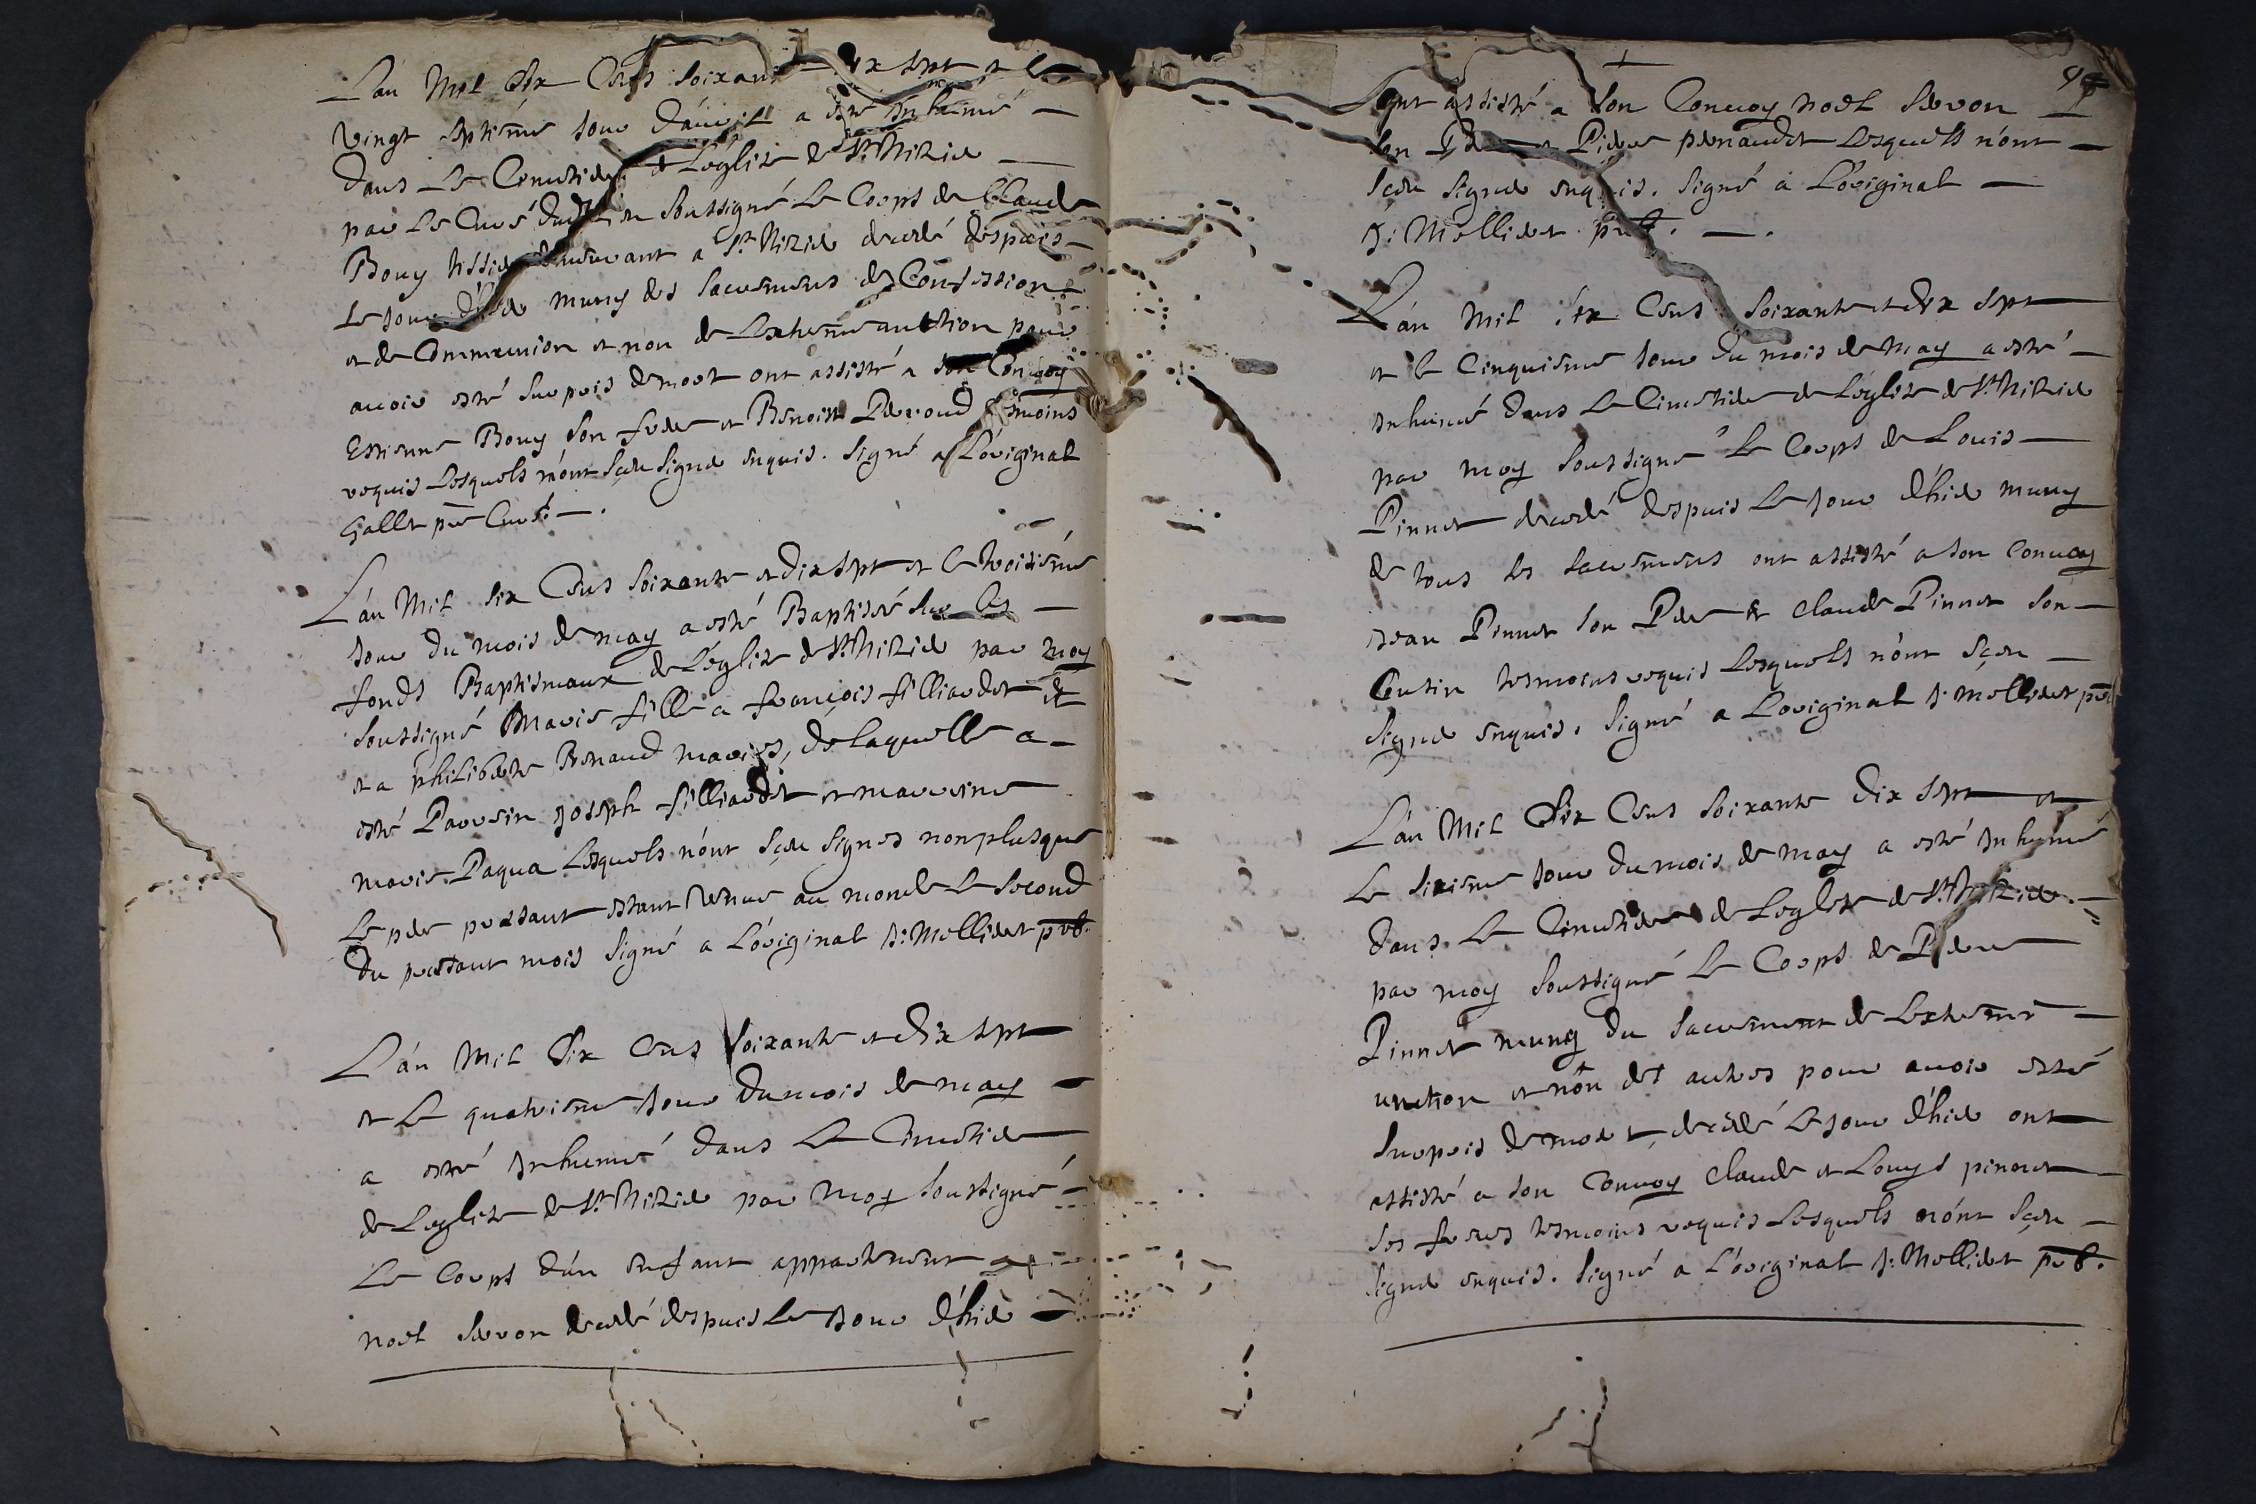 L'an Mil six Cens soixante dix sept et le
vingt septiême jour d'avril a esté Inhumé
dans Le Cimetiere de L'église de St. Nizier
par Le Curé dudit lieu soussigné Le Corps de Claude
Bouy tissier demeurant a St. Nizier decedé despuis
Le jour d'hier muny des sacremens de Confession
et de Communion et non de Lextreme auction pour
avoir esté surpris de mort ont assisté a son Convoy
Estienne Bouy son frere et Benoist Perroud temoins
requis Lesquels n'ont sçeu signer enquis. Signé a L'original
Gallet pre Curé.
L'an Mil six Cens soixante et dix sept et le troisiême
jour du mois de may a esté Baptisée sur les
fonds Baptismaux de L'église de St. Nizier par moy
soussigné Marie fille a françois filliardet et
et a philiberte Renaud mariés, de laquelle a
esté Parrein joseph filliardet et marreine
marie Paqua Lesquels n'ont sçeu signer non plus que
Le pere present estant venue au monde Le second
du present mois signé a L'original J: Mellieret prb.
L'an Mil Six Cens soixante et dix sept
et Le quatriême jour du mois de may
a esté Inhumé dans Le Cimetiere
de Leglise de St. Nizier par moy soussigné
Le Corps d'un enfant appartenent a
noel servon decedé despuis Le jour d'hier
ont assisté a son Convoy noel servon
son Pere et Pierre penaudet Lesquels n'ont
sçeu signer enquis. Signé a L'original
J: Mellieret prb.
L'an Mil six Cens soixante et dix sept
et le Cinquiême jour du mois de may a esté
Inhumé dans Le Cimetiere de L'eglise de St. Nizier
par moy soussigné Le Corps de Louis
Pinnet decedé despuis Le jour d'hier muny
de tous les sacremens ont assisté a son Convoy
jean Pinnet son Pere et Claude Pinnet son
Cousin tesmoins requis Lesquels n'ont sçeu
signer enquis. Signé a L'original J: Mellieret prb
L'an Mil Six Cens soixante dix sept et
Le sixiême jour du mois de may a esté Inhumé
dans Le Cimetiere de Leglise de St. Nizier
par moy soussigné Le Corps de Pierre
Pinnet muny du sacrement de Lextrême
unction et non des autres pour avoir esté
surpris de mort, decédé Le jour d'hier ont
assisté a son Convoy Claude et Louys pinnet
ses freres tesmoins requis Lesquels n'ont sçeu
signer enquis. Signé a L'original J: Mellieret prb.